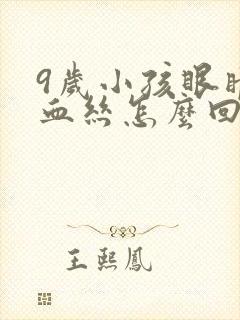 9歲小孩眼
血絲怎麼回
王熙鳳